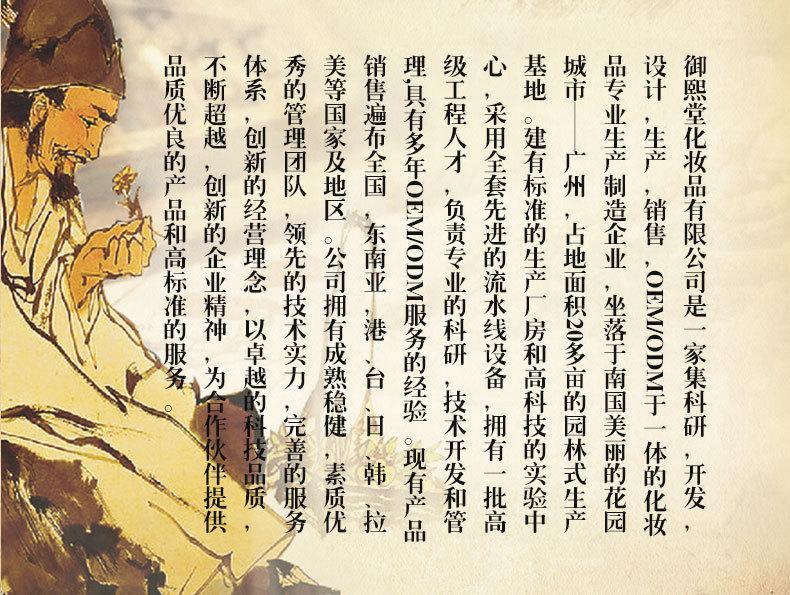 御熙堂化妆品有限公司是一家集科研,开发,
设计,生产,销售,OEM/ODM于一体的化妆
品专业生产制造企业,坐落于南国美丽的花园
城市——广州,占地面积20多亩的园林式生产
基地。建有标准的生产厂房和高科技的实验中
心,采用全套先进的流水线设备,拥有一批高
级工程人才,负责专业的科研,技术开发和管
理,具有多年OEM/ODM服务的经验。现有产品
销售遍布全国,东南亚,港、台、日、韩、拉
美等国家及地区。公司拥有成熟稳健,素质优
秀的管理团队,领先的技术实力,完善的服务
体系,创新的经营理念,以卓越的科技品质,
不断超越,创新的企业精神,为合作伙伴提供
品质优良的产品和高标准的服务。